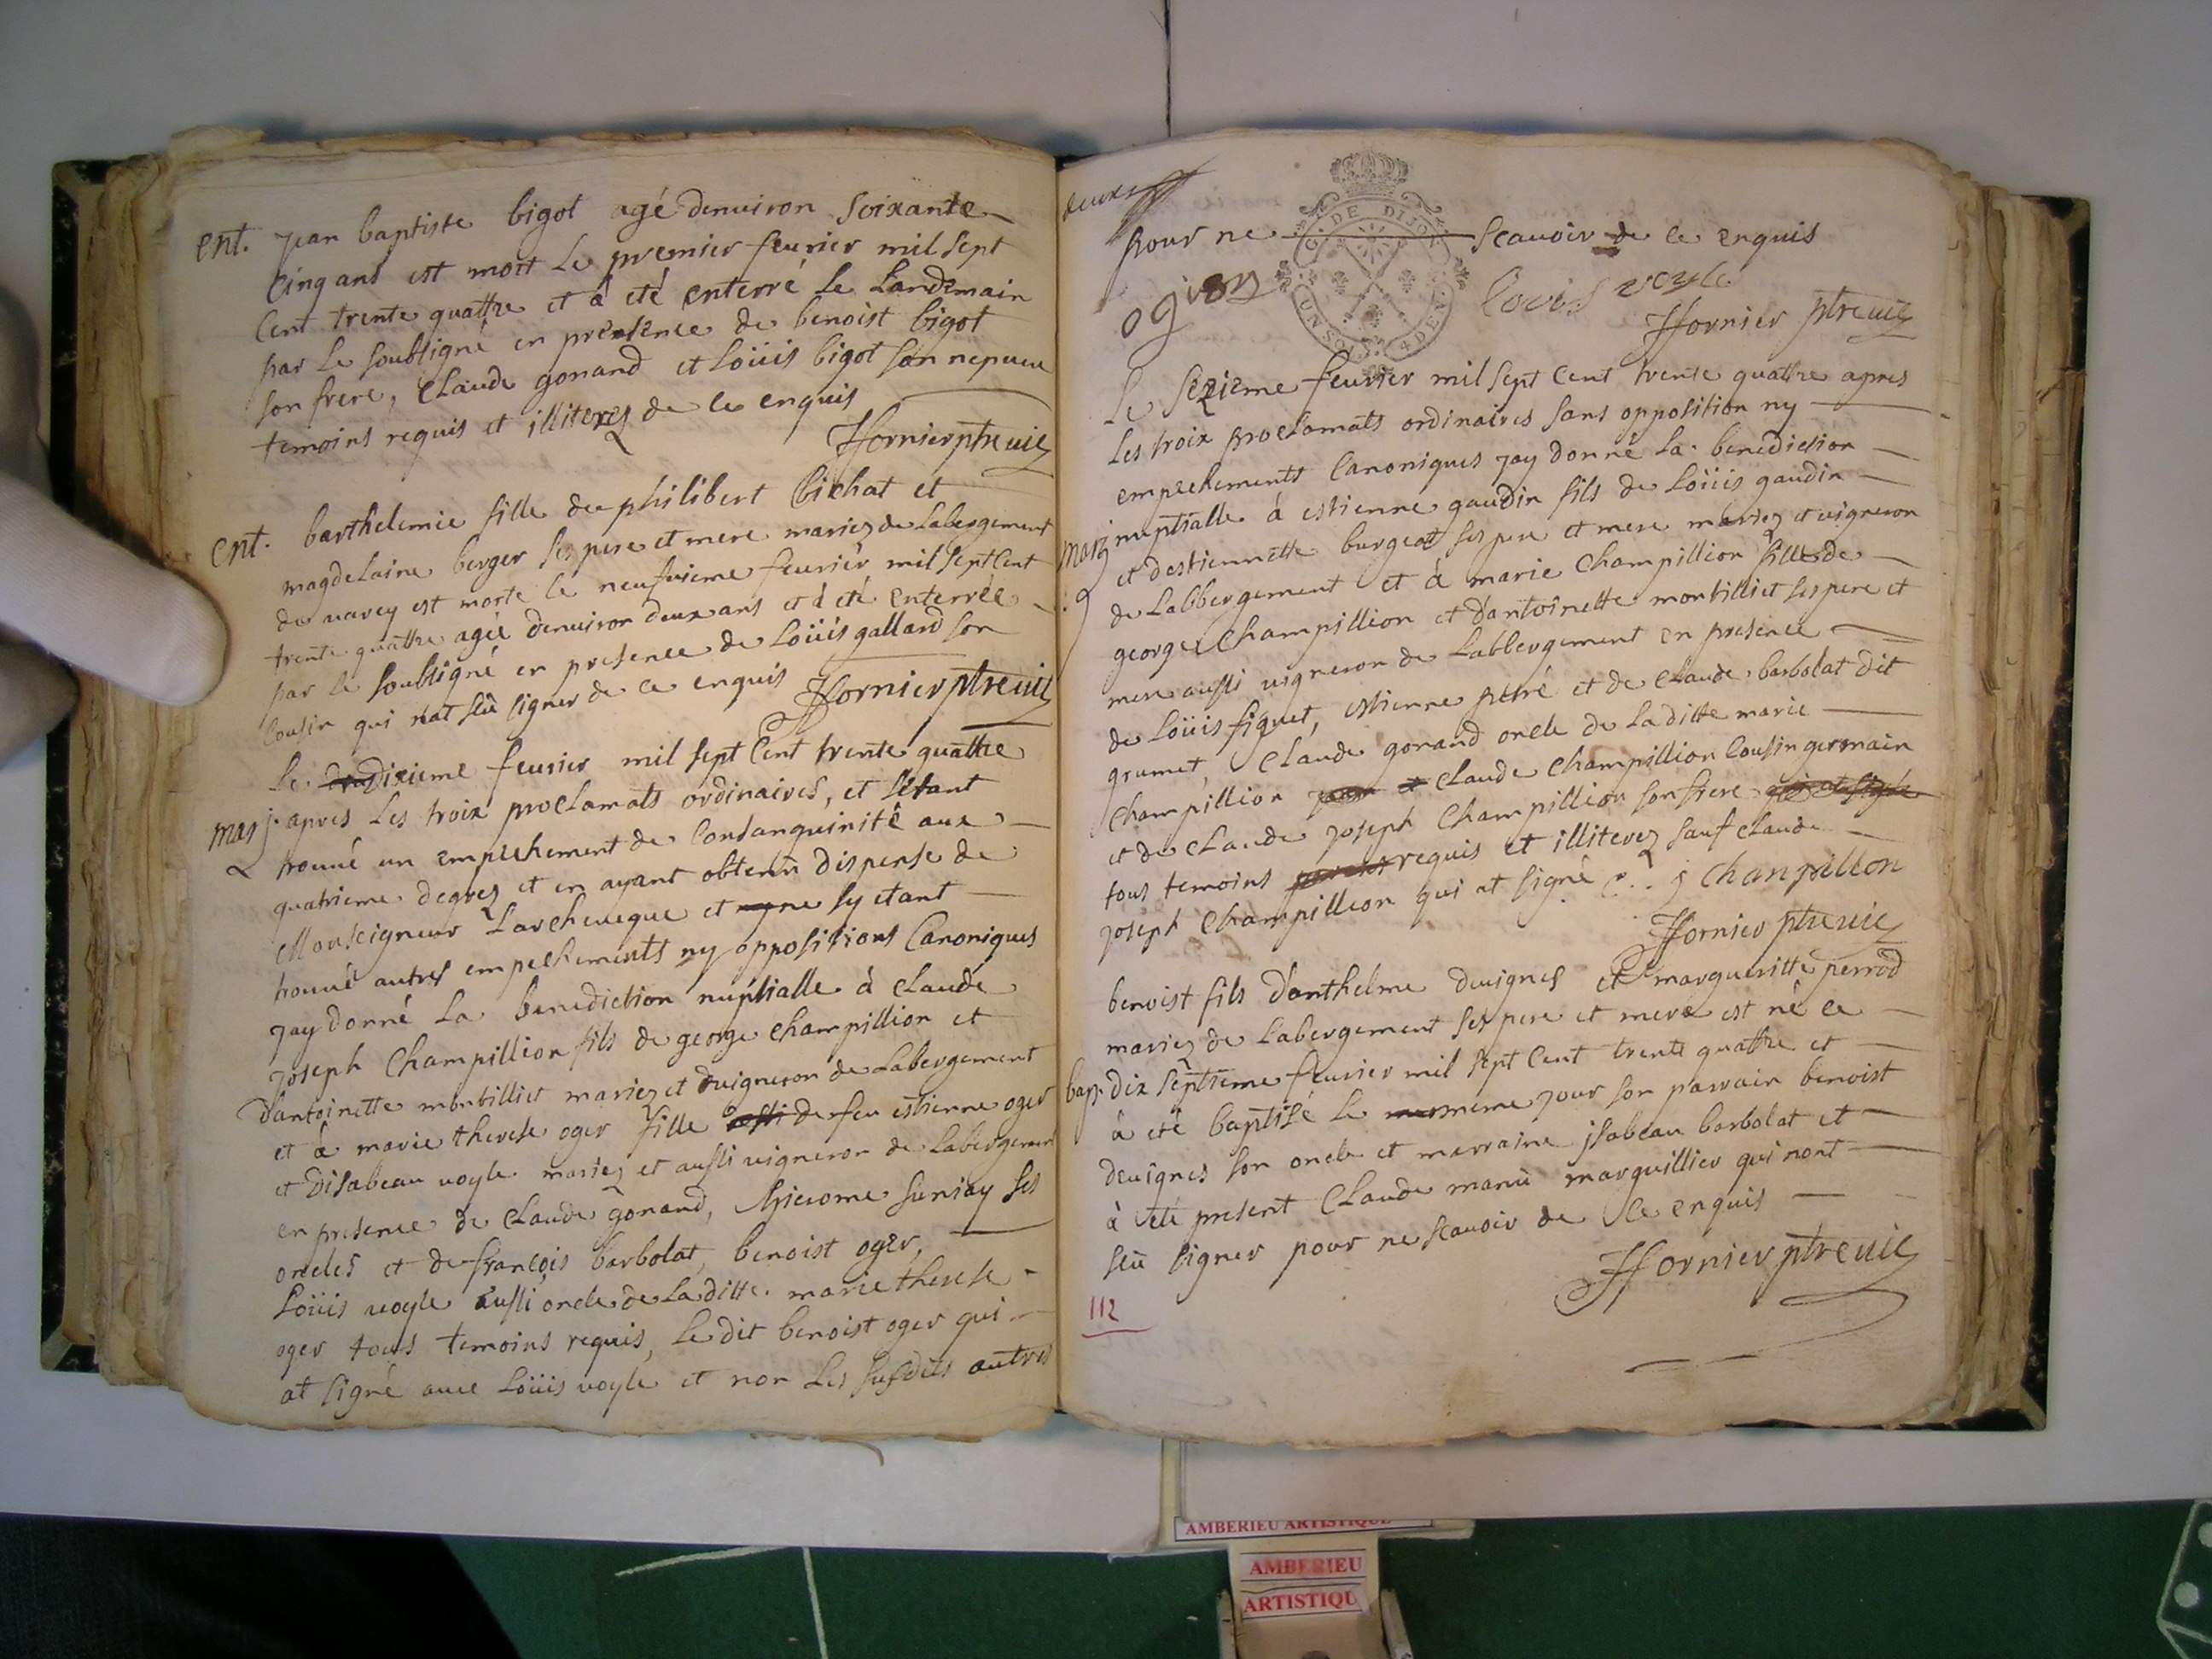 ent. jean baptiste bigot agé denuiron soixante
cinq ans est mort le premier feurier mil sept
cent trente quattre et à eté enterré le landemain
par le soubsigné en presence de benoist bigot
son frere, claude gonand et loüis bigot son nepueu
temoins requis et illiterez de ce enquis
Hornier ptre uic
ent. barthelemie fille de philibert bichat et
magdelaine berger ses pere et mere mariez de labergement
de uarey est morte le neufuieme feurier mil sept cent
trente quattre agée denuiron deux ans et à eté enterrée
par le soubsigné en presence de loüis gallard son
cousin qui nat scû signer de ce enquis Hornier ptre uic
Le dixieme feurier mil sept cent trente quattre
marj. apres les troix proclamats ordinaires, et sétant
trouué un empechement de consanguinité aux
quatrieme degrez et en ayant obtenu dispense de
Monseigneur Larcheueque et ne sy etant
trouué autres empechements ny oppositions canoniques
jay donné la benediction nuptialle à claude
joseph champillion fils de george champillion et
d'antoinette montilliet mariez et uigneron de Labergement
et à marie therese oger fille de feu estienne oger
et disabeau uoyle mariez et aussi uigneron de labergement
en presence de claude gonand, hierome suniay ses
oncles et de françois barbolat, benoist oger,
Loüis uoyle aussi oncle de laditte marie therese
oger tous temoins requis, le dit benoist oger qui
at signé auec Loüis uoyle et non les susdits autres
pour ne scauoir de ce enquis
G. DE DIJON
UN SOL 4 DEN.
ogier
lovis voyle
Hornier ptre uic
Le sezieme feurier mil sept cent trente quattre apres
les troix proclamats ordinaires sans opposition ny
empechements canoniques jay donné la benediction
marj nuptialle à estienne gaudin fils de Loüis gaudin
et destiennette burgeot ses pere et mere mariez et uigneron
de Labbergement et à marie champillion fille de
george champillion et d'antoinette montilliet ses pere et
mere aussi uigneron de Labbergement en presence
de Loüis figuet, estienne petré et de claude barbolat dit
grumet, claude gonand oncle de laditte marie
champillion claude champillion cousin germain
et de claude joseph champillion son frere
tous temoins requis et illiterez sauf claude
joseph champillion qui at signé c. j chanpillon
Hornier ptre uic
benoist fils d'anthelme deuignes et margueritte perrod
mariez de labergement ses pere et mere est né ce
bap. dix septieme feurier mil sept cent trente quattre et
à eté baptisé le meme jour son parrain benoist
deuignes son oncle et marraine jsabeau barbolat et
à eté present Claude manû marguillier qui nont
scû signer pour ne scauoir de ce enquis
Hornier ptre uic
112
AMBERIEU ARTISTIQUE
AMBERIEU
ARTISTIQU